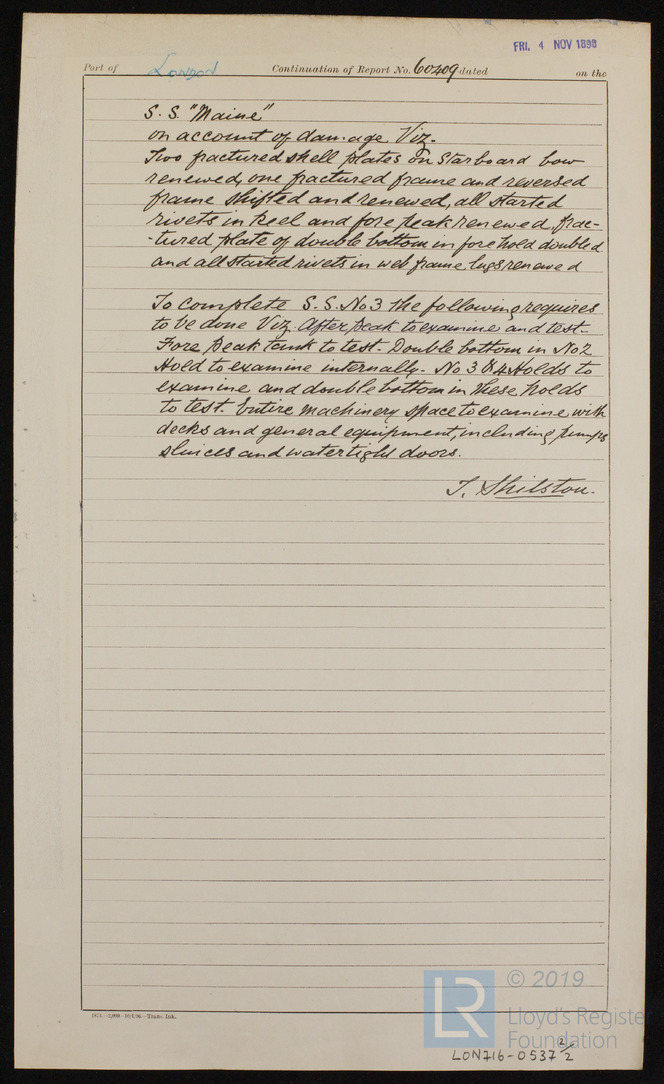 FRI. 4 NOV 1898
Port of London Continuation of Report No. 60409 dated on the
S. S. "Maine"
on account of damage. Viz.
Two fractured shell plates on Starboard bow
renewed, one fractured frame and reversed
frame shifted and renewed, all started
rivets in keel and fore peak renewed, frac-
-tured plate of double bottom in fore hold doubled
and all started rivets in web frame lugs renewed
To complete S. S. No 3 the following requires
to be done Viz. After peak to examine and test.
Fore peak tank to test. Double bottom in No 2
Hold to examine internally. No 3 & 4 Holds to
examine and double bottom in these holds
to test. Entire machinery space to examine with
decks and general equipment, including pumps
sluices and watertight doors.
T. Shilston.
Trans. Ink.
© 2019
LR
Lloyd's Register
Foundation
LON716-0537 2/2